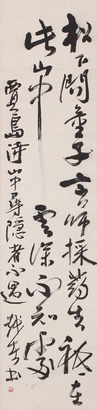 松下問童子言師採藥去秖在
此山中雲深不知處
賈島詩尋隱者不遇 書